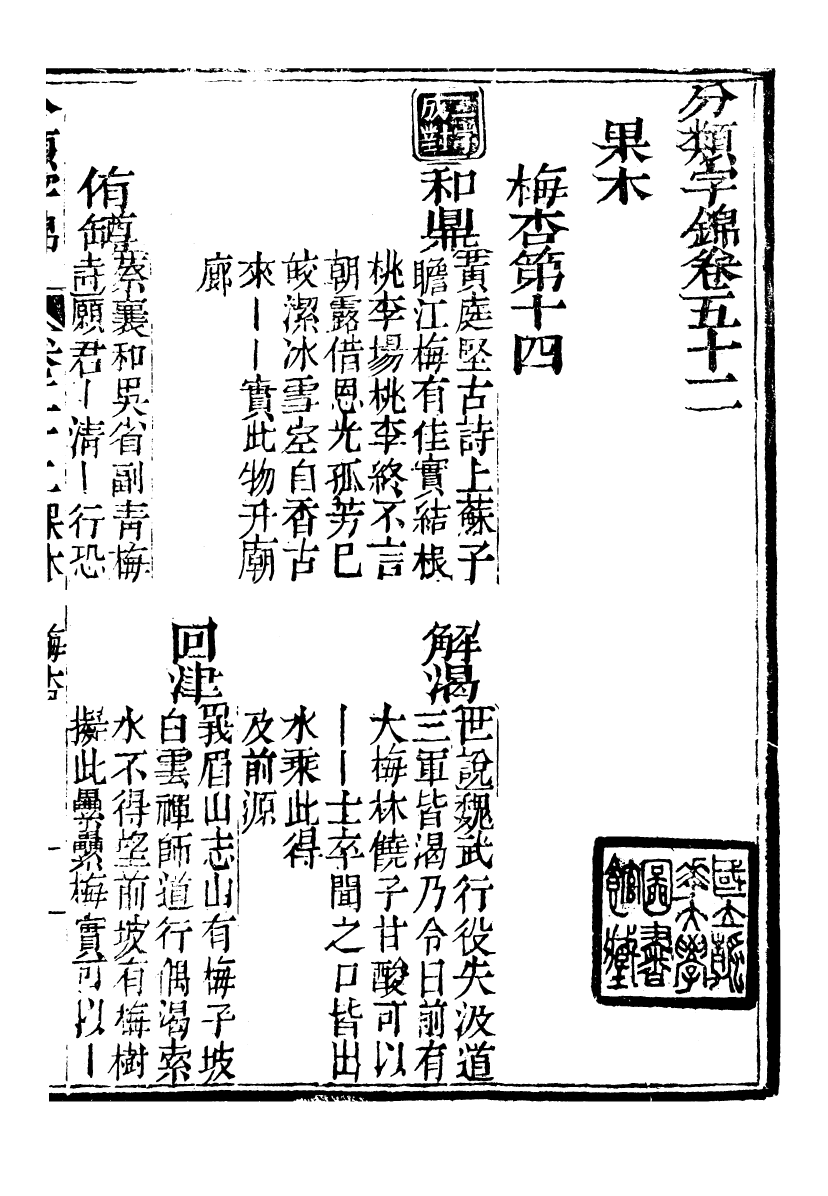 分類字錦卷五十二
果木
梅杏第十四
二字成對
和鼎
黃庭堅古詩上蘇子
瞻江梅有佳實結根
桃李場桃李終不言
朝露借恩光孤芳已
皎潔冰雪空自香古
來丨丨實此物升廟
廊
解渴
世說魏武行役失汲道
三軍皆渴乃令曰前有
大梅林饒子甘酸可以
丨丨士卒聞之口皆出
水乘此得
及前源
侑罇
蔡襄和吳省副青梅
詩願君丨清丨行恐
回津
峩眉山志山有梅子坡
白雲禪師道行偶渴索
水不得望前坡有梅樹
擬此纍纍梅實可以丨
分類字錦 卷五十二 果木 梅杏 一
國立
大學
圖書
館藏